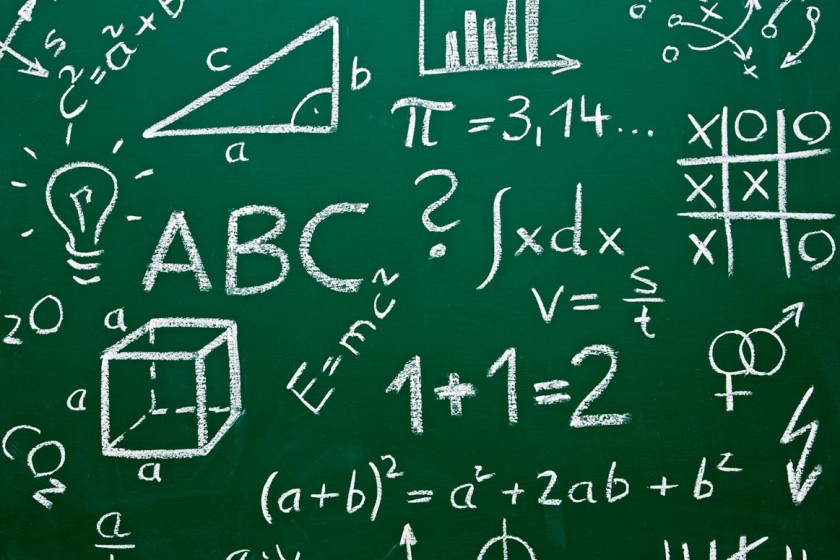 c² = a² + b
s
c
b
a
π = 3,14...
X O O
X X
X O
?
∫xdx
ABC
v = s/t
E=mc²
2O
a
a
a
1+1=2
CO₂
(a+b)² = a² + 2ab + b²
a